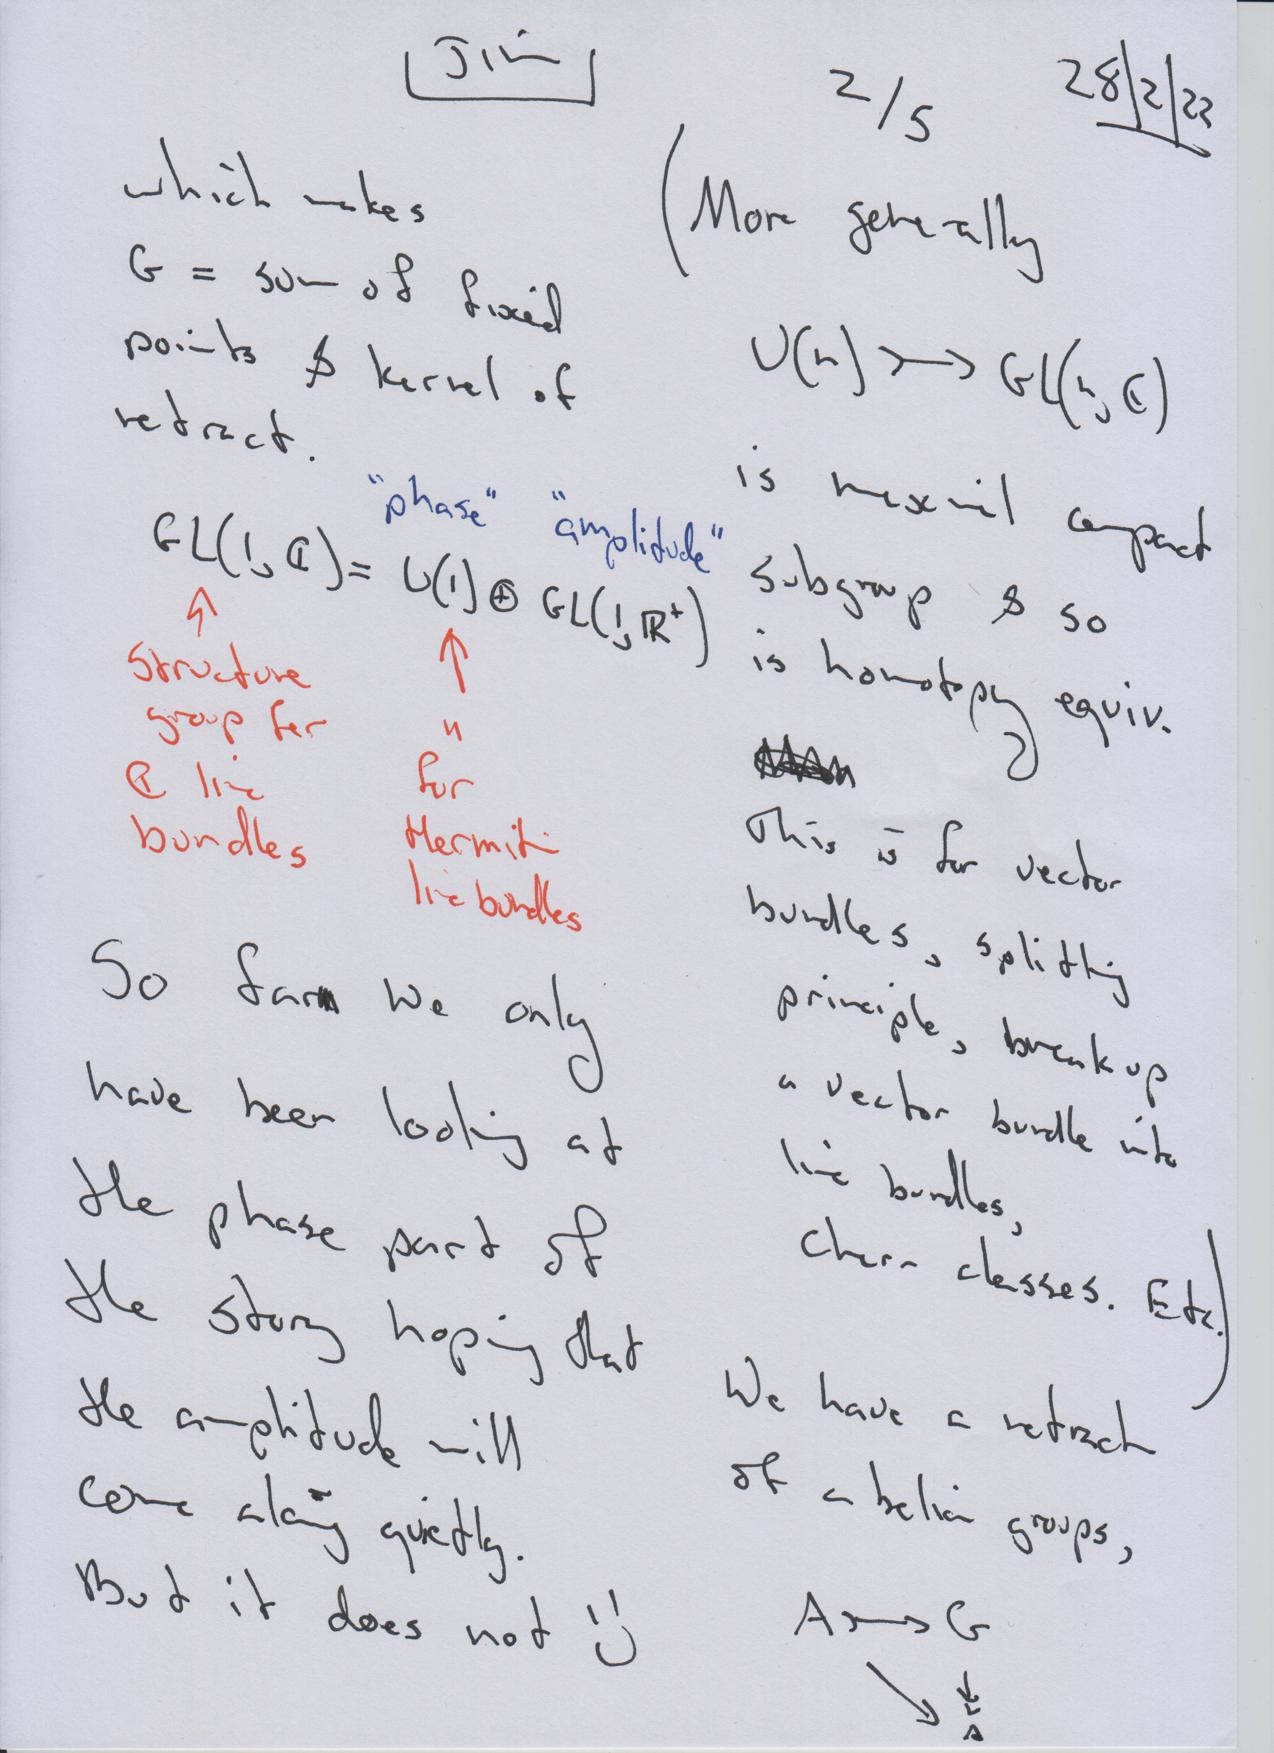 Jim
2/5
28/2/23
which makes
G = sum of fixed
points & kernel of
retract.
"phase" "amplitude"
GL(1, ℂ) = U(1) ⊕ GL(1, ℝ⁺)
↑
Structure
group for
ℂ line
bundles
↑
"
for
Hermitian
line bundles
So far we only
have been looking at
the phase part of
the story hoping that
the amplitude will
come along quietly.
But it does not :)
(More generally
U(n) >→ GL(n, ℂ)
is maximal compact
subgroup & so
is homotopy equiv.
This is for vector
bundles, splitting
principle, break up
a vector bundle into
line bundles,
Chern classes. Etc.)
We have a retract
of abelian groups,
A >→ G
↘ ↓
A